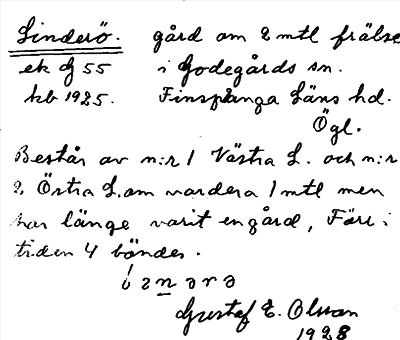 Linderö. gård om 2 mtl frälse
ek Dj 55 i Godegårds sn.
kb 1925. Finspånga Läns hd.
Ögl.
Består av n:r 1 Västra L. och n:r
2 Östra L. om vardera 1 mtl men
har länge varit en gård, Förr i
tiden 4 bönder.
Gustaf E. Olsson
1928